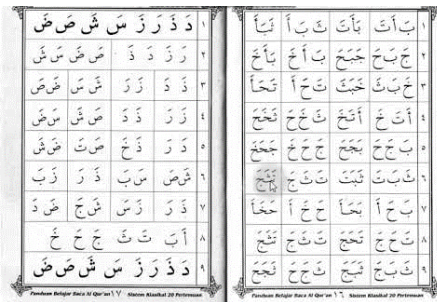 ١ بَ أَ تَ بَأَتَ ثَ بَ أَ ثَبَأَ
٢ جَ بَ حَ جَبَحَ بَ أَ خَ بَأَخَ
٣ خَ بَ ثَ خَبَثَ تَ حَ أَ تَحَأَ
٤ أَ تَ خَ أَتَخَ ثَ خَ حَ ثَخَحَ
٥ بَ جَ حَ بَجَحَ جَ حَ خَ جَحَخَ
٦ ثَ بَ تَ ثَبَتَ تَ ثَ جَ تَثَجَ
٧ بَ حَ أَ بَحَأَ حَ خَ أَ حَخَأَ
٨ تَ حَ جَ تَحَجَ تَ ثَ جَ تَثَجَ
٩ ثَ بَ جَ ثَبَجَ ثَ حَ جَ ثَحَجَ
Panduan Belajar Baca Al Qur'an ١٦ Sistem Klasikal 20 Pertemuan
١ دَ ذَ رَ زَ سَ شَ صَ ضَ
٢ رَ زَ دَ ذَ صَ ضَ سَ شَ
٣ ذَ دَ زَ رَ شَ سَ ضَ صَ
٤ زَ رَ ذَ دَ صَ شَ سَ ضَ
٥ دَ رَ ذَ خَ صَ تَ ضَ شَ
٦ شَ صَ سَ بَ ذَ رَ زَ بَ
٧ ذَ رَ زَ سَ شَ جَ ضَ دَ
٨ أَ بَ تَ ثَ جَ حَ خَ
٩ دَ ذَ رَ زَ سَ شَ صَ ضَ
Panduan Belajar Baca Al Qur'an ١٧ Sistem Klasikal 20 Pertemuan